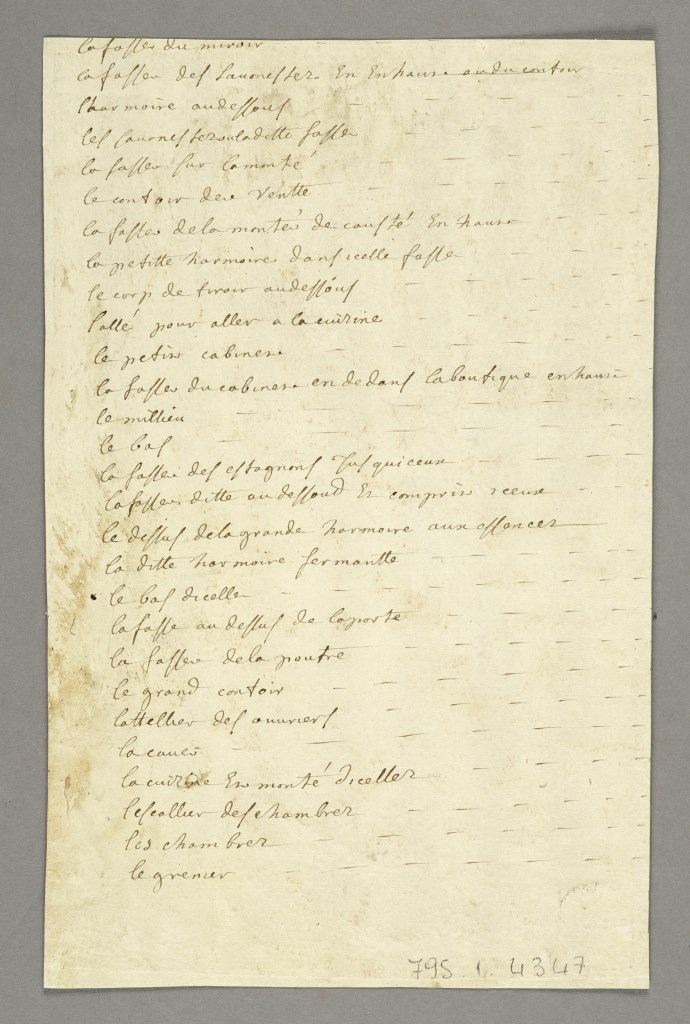 la fasse du miroir
la fasse des savonestez En Enhaut au du contoir
lharmoire audessous
les savonestez ou la ditte fasse
la fasse sur la monté
le contoir de ventte
la fasse de la monté de cousté En haut
la petitte harmoire dans icelle fasse
le corp de tiroir audessous
lallé pour aller a la cuizine
le petit cabinet
la fasse du cabinet en dedans la boutique en haut
le millieu
le bas
la fasse des estagnons Jusqu iceux
la fasse ditte au dessoud Et compris iceux
le dessus de la grande harmoire aux essencez
la ditte harmoire fermantte
le bas dicelle
la fasse au dessus de la porte
la fasse de la poutre
le grand contoir
lattellier des ouvriers
la cave
la cuizine Et monté dicellez
lescallier des chambrez
les chambrez
le grenier
795.1.4347